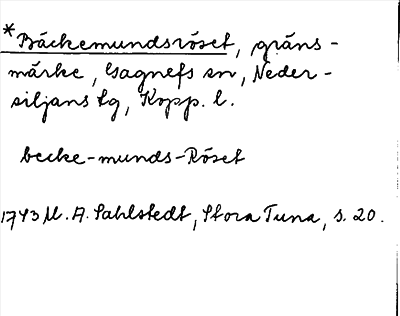 *Bäckemundsröset, gräns-
märke, Gagnefs sn, Neder-
siljans tg, Kopp. l.
becke-munds-Röset
1743 U. A. Sahlstedt, Stora Tuna, s. 20.